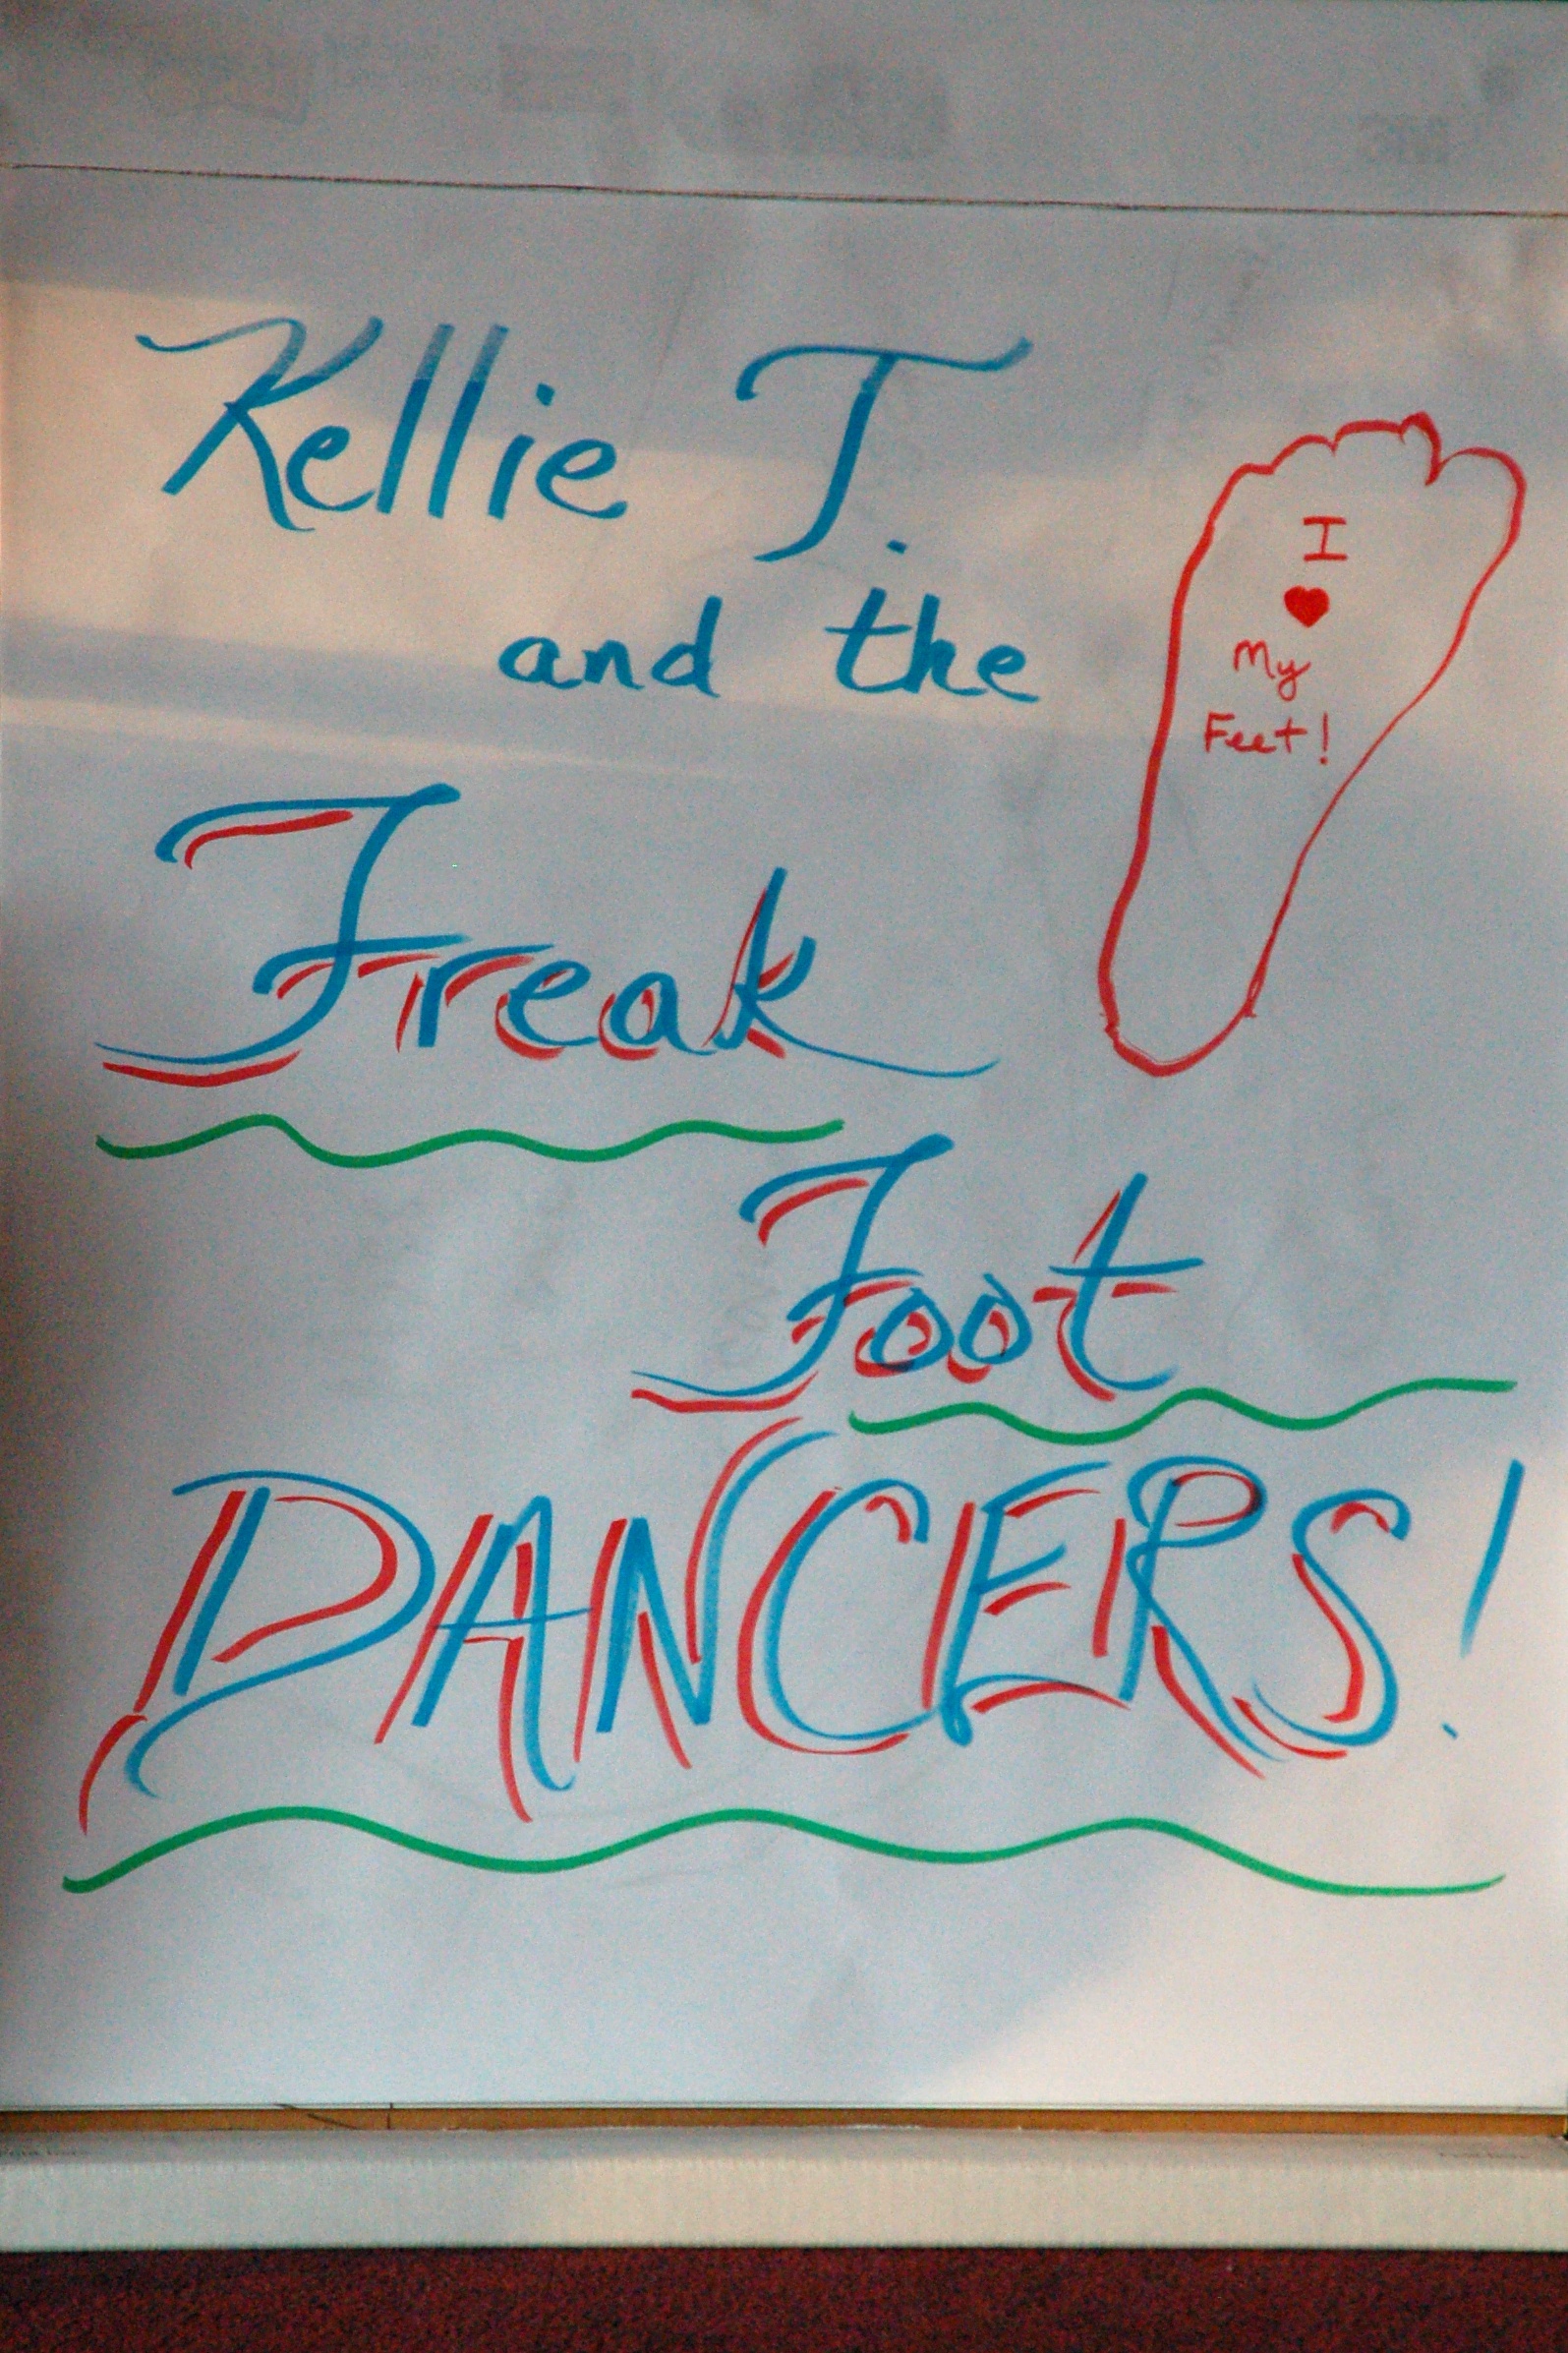 Kellie T.
and the
Freak
Foot
DANCERS!
I ♥
My
Feet!